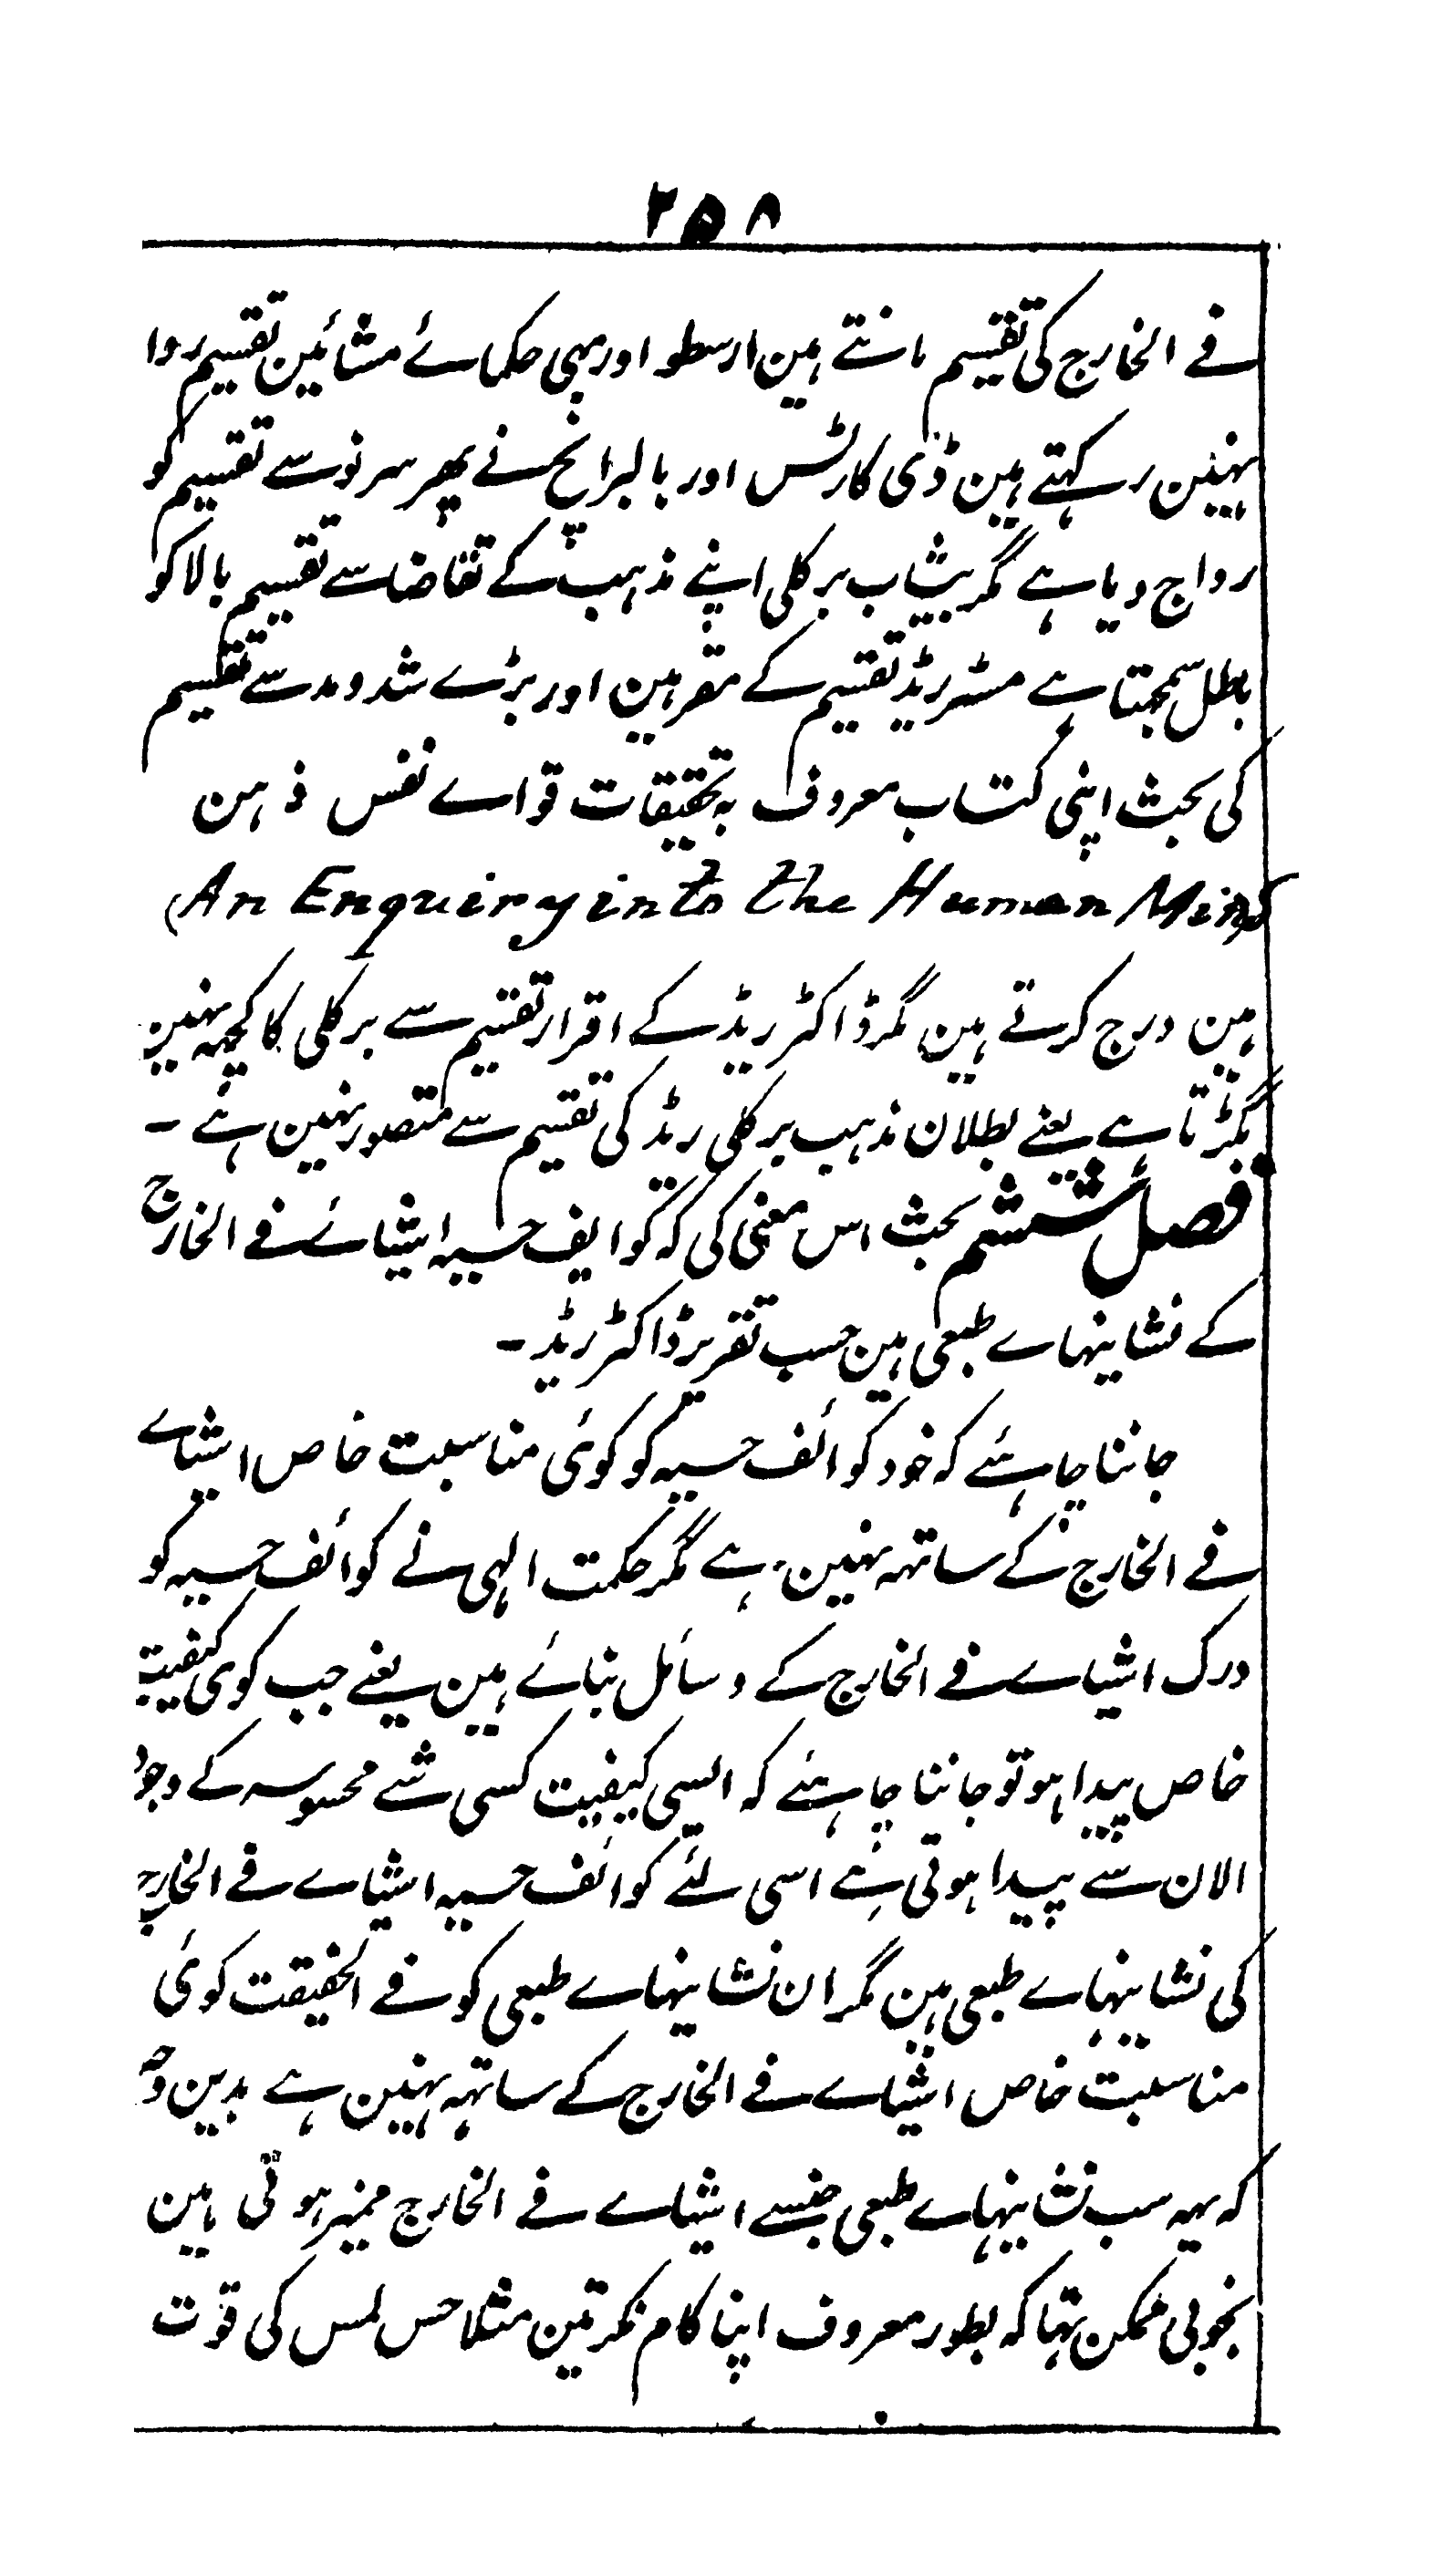 ۲۵۸
فے الخارج کی تقسیم مانتے ہین ارسطو اور بہی حکمائے مشائین تقسیم روا
نہین رکہتے ہین ڈی کارٹس اور بالبرانچ نے پھر سر نو سے تقسیم کو
رواج دیا ہے مگر بیشاب برکلی اپنے مذہب کے تقاضا سے تقسیم بالا کو
باطل سمجہتا ہے مسٹر ریڈ تقسیم کے مقر ہین اور بڑے شد و مد سے تقسیم
کی بحث اپنی کتاب معروف بہ تحقیقات قواے نفس ذہن
(An Enquiry into the Human Mind
ہین درج کرتے ہین مگر ڈاکٹر ریڈ کے اقرار تقسیم سے برکلی کا کچہہ نہین
بگڑتا ہے یعنے بطلان مذہب برکلی ریڈ کی تقسیم سے متصور نہین ہے ۔
فصل ششم بحث اس معنی کی کہ کوایف حسیہ اشیائے فے الخارج
کے نشاینہاے طبعی ہین حسب تقریر ڈاکٹر ریڈ ۔
جاننا چاہئے کہ خود کوائف حسیہ کو کوئی مناسبت خاص اشیاے
فے الخارج کے ساتہہ نہین ہے مگر حکمت الہی نے کوائف حسیہ کو
درک اشیاے فے الخارج کے وسائل بنائے ہین یعنے جب کوی کیفیت
خاص پیدا ہو تو جاننا چاہئے کہ ایسی کیفیت کسی شے محسوسہ کے وجود
الان سے پیدا ہوتی ہے اسی لئے کوائف حسیہ اشیاے فے الخارج
کی نشاینہاے طبعی ہین مگر ان نشاینہاے طبعی کو فے الحقیقت کوئی
مناسبت خاص اشیاے فے الخارج کے ساتہہ نہین ہے بدین وجہ
کہ یہہ سب نشاینہاے طبعی جنسے اشیاے فے الخارج ممیز ہوتی ہین
بخوبی ممکن تہا کہ بطور معروف اپنا کام نکرتین مثلا حس لمس کی قوت